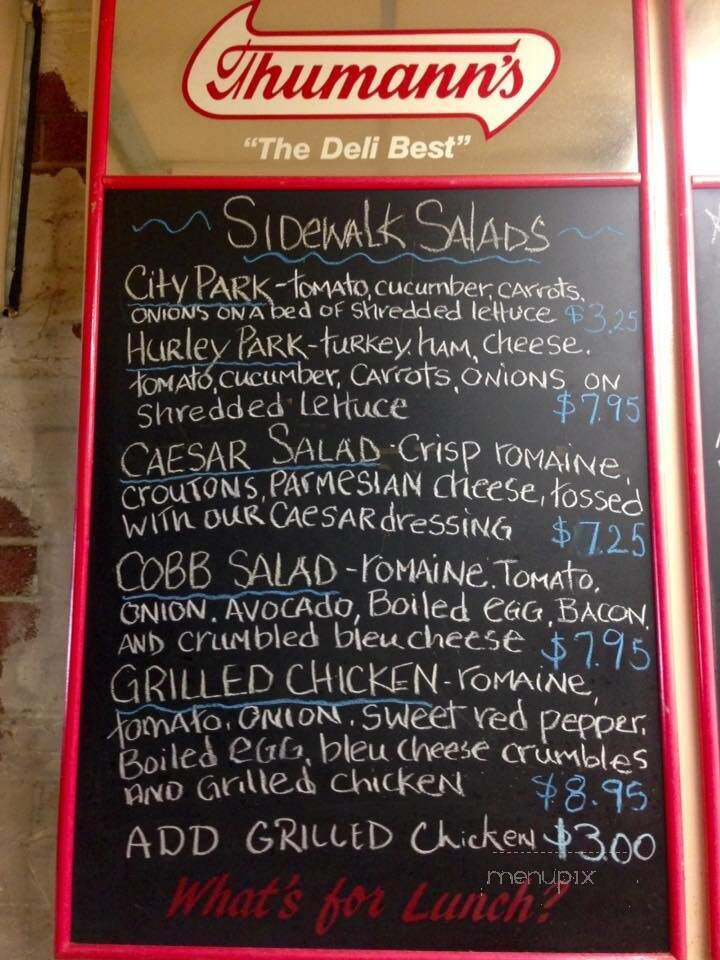 Thumann's
"The Deli Best"
SIDEWALK SALADS
City PARK - tomato, cucumber, carrots,
onions on a bed of shredded lettuce $3.25
Hurley PARK - turkey, ham, cheese,
tomato, cucumber, carrots, onions on
shredded lettuce $7.95
CAESAR SALAD - Crisp romaine,
croutons, Parmesian cheese, tossed
with our Caesar dressing $7.25
COBB SALAD - romaine, Tomato,
onion, Avocado, Boiled egg, Bacon,
and crumbled bleu cheese $7.95
GRILLED CHICKEN - romaine,
tomato, onion, sweet red pepper,
Boiled egg, bleu cheese crumbles
and Grilled chicken $8.95
ADD GRILLED Chicken $3.00
menupix
What's for Lunch?